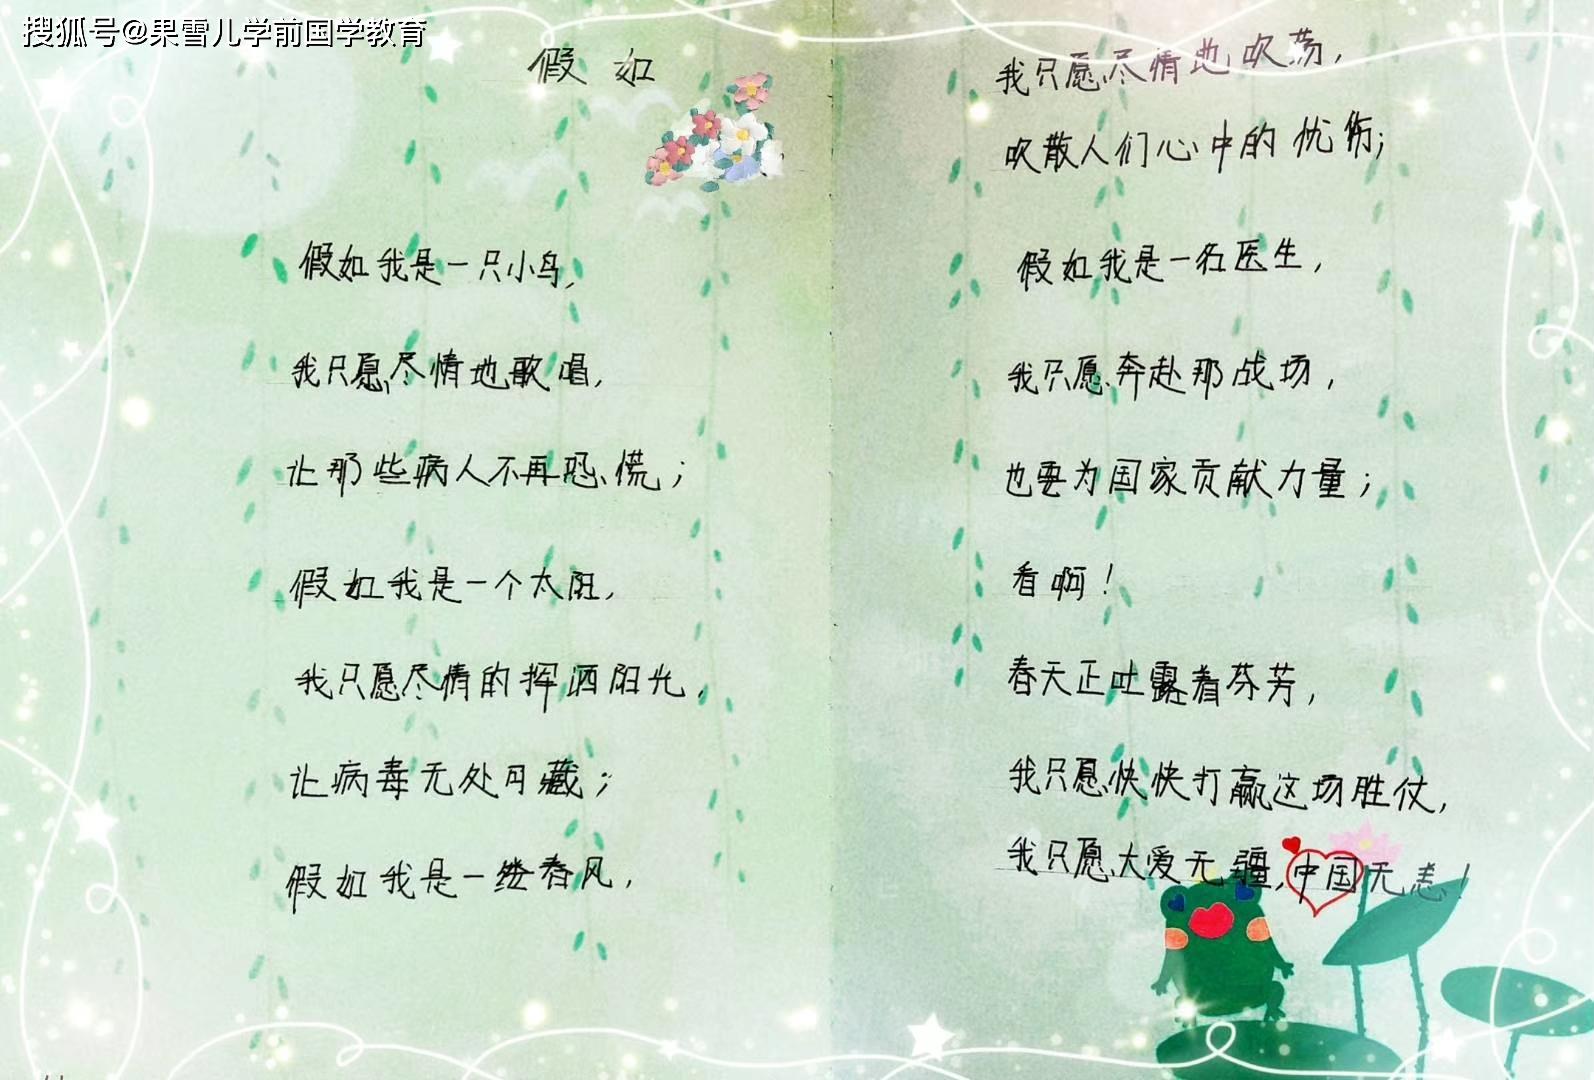 搜狐号@果雪儿学前国学教育
假如
假如我是一只小鸟,
我只愿尽情地歌唱,
让那些病人不再恐慌;
假如我是一个太阳,
我只愿尽情的挥洒阳光,
让病毒无处可藏;
假如我是一缕春风,
我只愿尽情地吹荡,
吹散人们心中的忧伤;
假如我是一名医生,
我只愿奔赴那战场,
也要为国家贡献力量;
看啊!
春天正吐露着芬芳,
我只愿快快打赢这场胜仗,
我只愿大爱无疆,中国无恙!